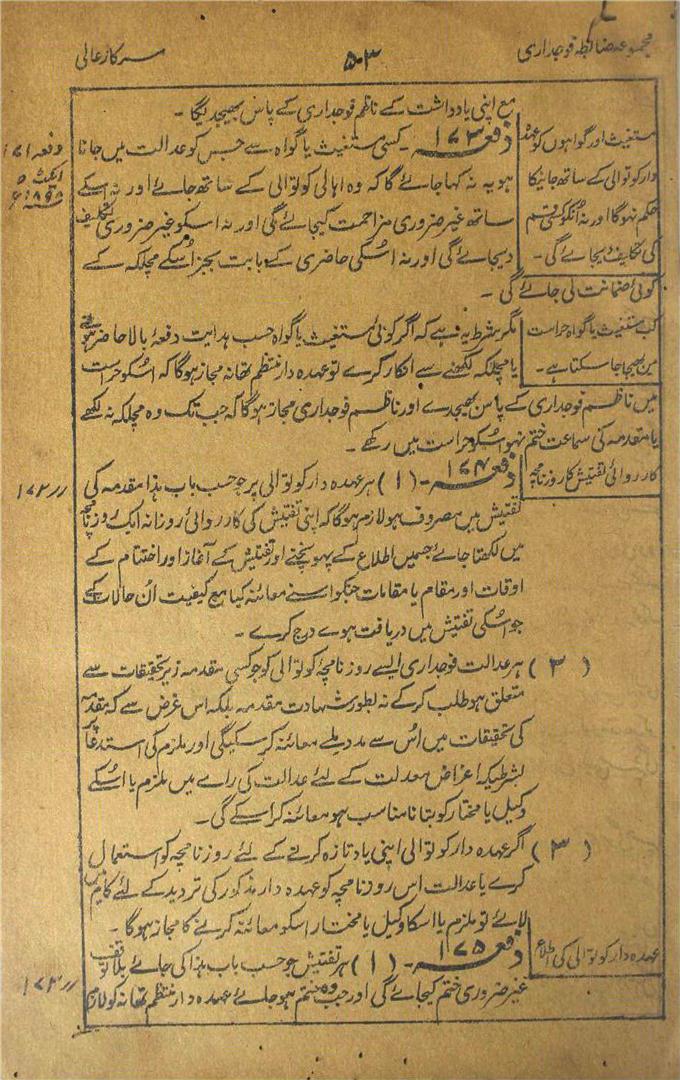 مجموعہ ضابطہ فوجداری
۵۰۳
سرکار عالی
مع اپنی یادداشت کے ناظم فوجداری کے پاس بھیجدیگا۔
مستغیث اور گواہوں کو عہدہ
دار کوتوالی کے ساتھ جانیکا
حکم نہوگا اور نہ اُنکو کسی قسم
کی تکلیف دیجائے گی۔
دفعہ ۱۷۳۔ کسی مستغیث یا گواہ سے جس کو عدالت میں جانا
ہو یہ نہ کہا جائے گا کہ وہ اہالی کوتوالی کے ساتھ جائے اور نہ اسکے
ساتھ غیر ضروری مزاحمت کیجائے گی اور نہ اسکو غیر ضروری تکلیف
دیجائے گی اور نہ اسکی حاضری کے بابت بجز اُسکے مچلکہ کے
کوئی ضمانت لی جائے گی۔
دفعہ ۱۷۱
ایکٹ ۵
۱۸۹۸ء
کب مستغیث یا گواہ حراست
میں بھیجا جا سکتا ہے۔
مگر شرط یہ ہے کہ اگر کوئی مستغیث یا گواہ حسب ہدایت دفعہ بالا حاضر ہونے
یا مچلکہ لکھنے سے انکار کرے تو عہدہ دار منتظم تھانہ مجاز ہوگا کہ اسکو حراست
میں ناظم فوجداری کے پاس بھیجدے اور ناظم فوجداری مجاز ہوگا کہ جب تک وہ مچلکہ نہ لکھے
یا مقدمہ کی سماعت ختم نہو اسکو حراست میں رکھے۔
کارروائی تفتیش کا روزنامچہ
دفعہ ۱۷۴۔ (۱) ہر عہدہ دار کوتوالی پر جو حسب باب ہذا مقدمہ کی
تفتیش میں مصروف ہو لازم ہوگا کہ اپنی تفتیش کی کارروائی روزانہ ایک روزنامچہ
میں لکھتا جائے جسمیں اطلاع کے پہونچنے اور تفتیش کے آغاز اور اختتام کے
اوقات اور مقام یا مقامات جنکو اسنے معائنہ کیا مع کیفیت اُن حالات کے
جو اسکی تفتیش میں دریافت ہوے درج کرے۔
〃 ۱۷۲
(۲) ہر عدالت فوجداری ایسے روزنامچہ کوتوالی کو جو کسی مقدمہ زیر تحقیقات سے
متعلق ہو طلب کرکے نہ بطور شہادت مقدمہ بلکہ اس غرض سے کہ مقدمہ
کی تحقیقات میں اُس سے مدد ملے معائنہ کر سکیگی اور ملزم کی استدعا پر
بشرطیکہ اغراض معدلت کے لئے عدالت کی رائے میں ملزم یا اُسکے
وکیل یا مختار کو بتانا مناسب ہو معائنہ کراسکے گی۔
(۳) اگر عہدہ دار کوتوالی اپنی یاد تازہ کرنے کے لئے روزنامچہ کو استعمال
کرے یا عدالت اس روزنامچہ کو عہدہ دار مذکور کی تردید کے لئے کام میں
لائے تو ملزم یا اسکا وکیل یا مختار اسکو معائنہ کرنے کا مجاز ہوگا۔
عہدہ دار کوتوالی کی اطلاع
دفعہ ۱۷۵۔ (۱) ہر تفتیش جو حسب باب ہذا کی جائے بلا توقف
غیر ضروری ختم کیجائے گی اور جب وہ ختم ہو جائے عہدہ دار منتظم تھانہ کو لازم
〃 ۱۷۳